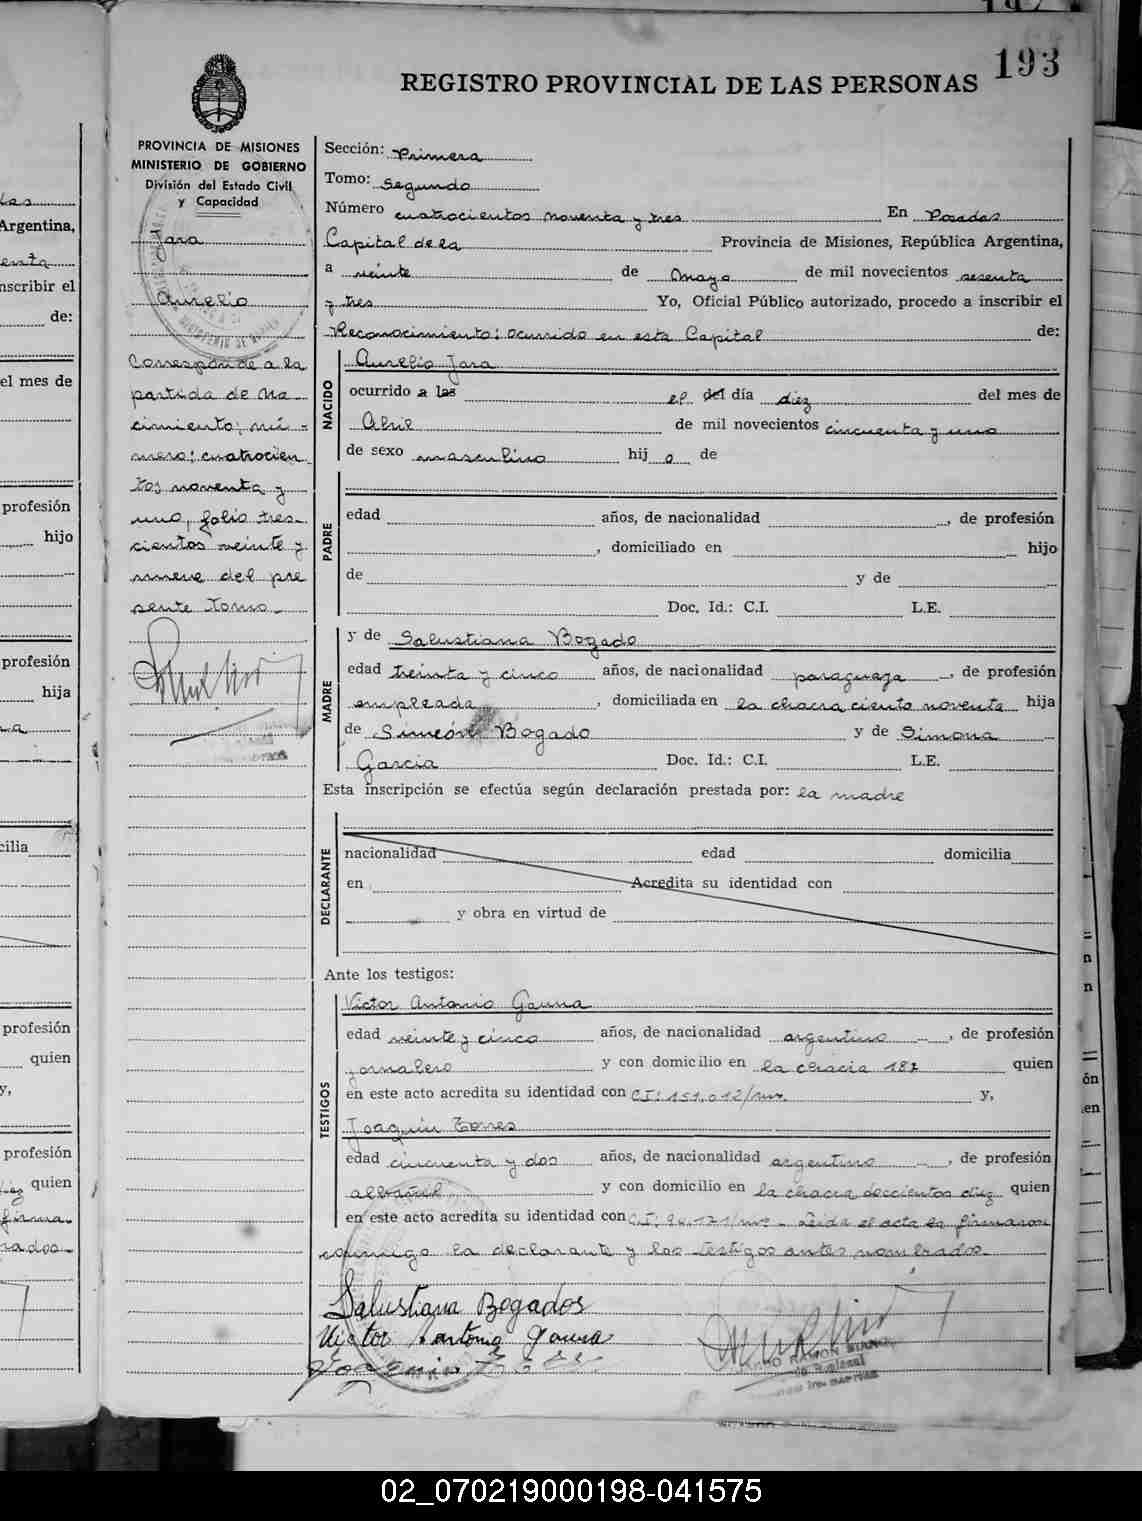 193
REGISTRO PROVINCIAL DE LAS PERSONAS
PROVINCIA DE MISIONES
MINISTERIO DE GOBIERNO
División del Estado Civil
y Capacidad
Jara
Aurelio
Corresponde a la
partida de Na-
cimiento; nú-
mero: cuatrocien
tos noventa y
uno, folio tres-
cientos veinte y
nueve del pre
sente Tomo.-
Sección: Primera
Tomo: Segundo
Número cuatrocientos noventa y tres En Posadas
Capital de la Provincia de Misiones, República Argentina,
a veinte de Mayo de mil novecientos sesenta
y tres Yo, Oficial Público autorizado, procedo a inscribir el
Reconocimiento: ocurrido en esta Capital de:
NACIDO
Aurelio Jara
ocurrido a las el del día diez del mes de
Abril de mil novecientos cincuenta y uno
de sexo masculino hij o de
PADRE
edad años, de nacionalidad , de profesión
, domiciliado en hijo
de y de
Doc. Id.: C.I. L.E.
MADRE
y de Salustiana Bogado
edad treinta y cinco años, de nacionalidad paraguaya , de profesión
empleada , domiciliada en la chacra ciento noventa hija
de Simeón Bogado y de Simona
Garcia Doc. Id.: C.I. L.E.
Esta inscripción se efectúa según declaración prestada por: la madre
DECLARANTE
nacionalidad edad domicilia
en Acredita su identidad con
y obra en virtud de
Ante los testigos:
TESTIGOS
Victor Antonio Gauna
edad veinte y cinco años, de nacionalidad argentino , de profesión
jornalero y con domicilio en la chacra 187 quien
en este acto acredita su identidad con C.I: 151.012/mnes. y,
Joaquin Torres
edad cincuenta y dos años, de nacionalidad argentino , de profesión
albañil y con domicilio en la chacra doccientos diez quien
en este acto acredita su identidad con C.I: Leida el acta la firmaron
conmigo la declarante y los testigos antes nombrados.
Salustiana Bogados
Victor Antonio Gauna
Joaquin
RAMON
02_070219000198-041575